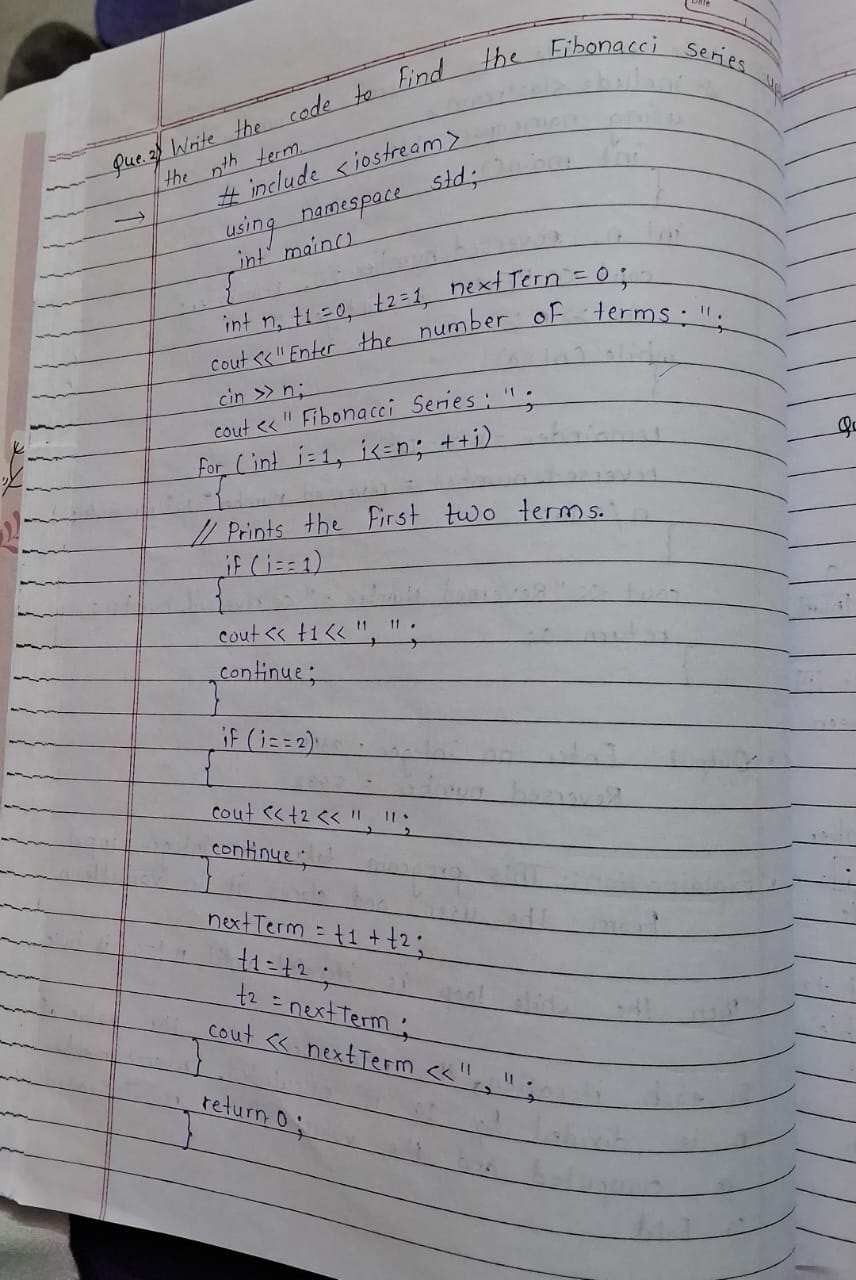 Que.2) Write the code to find the Fibonacci series up
the nth term.
→ # include <iostream>
using namespace std;
int main()
{
int n, t1=0, t2=1, next Tern = 0;
cout <<"Enter the number of terms: ";
cin >> n;
cout << " Fibonacci Series: ";
for (int i=1, i<=n; ++i)
{
// Prints the first two terms.
if (i==1)
{
cout << t1 << ", ";
continue;
}
if (i==2)
{
cout << t2 << ", ";
continue;
}
nextTerm = t1 + t2;
t1=t2;
t2 = nextTerm;
cout << nextTerm << ", ";
}
return 0;
}